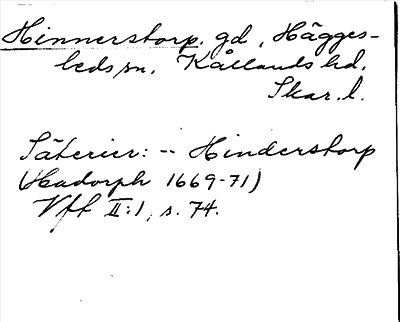 Hinnerstorp. gd, Hägges-
leds sn. Kållands hd.
Skar. l.
Säterier: -- Hinderstorp
(Hadorph 1669-71)
Vff II:1, s. 74.